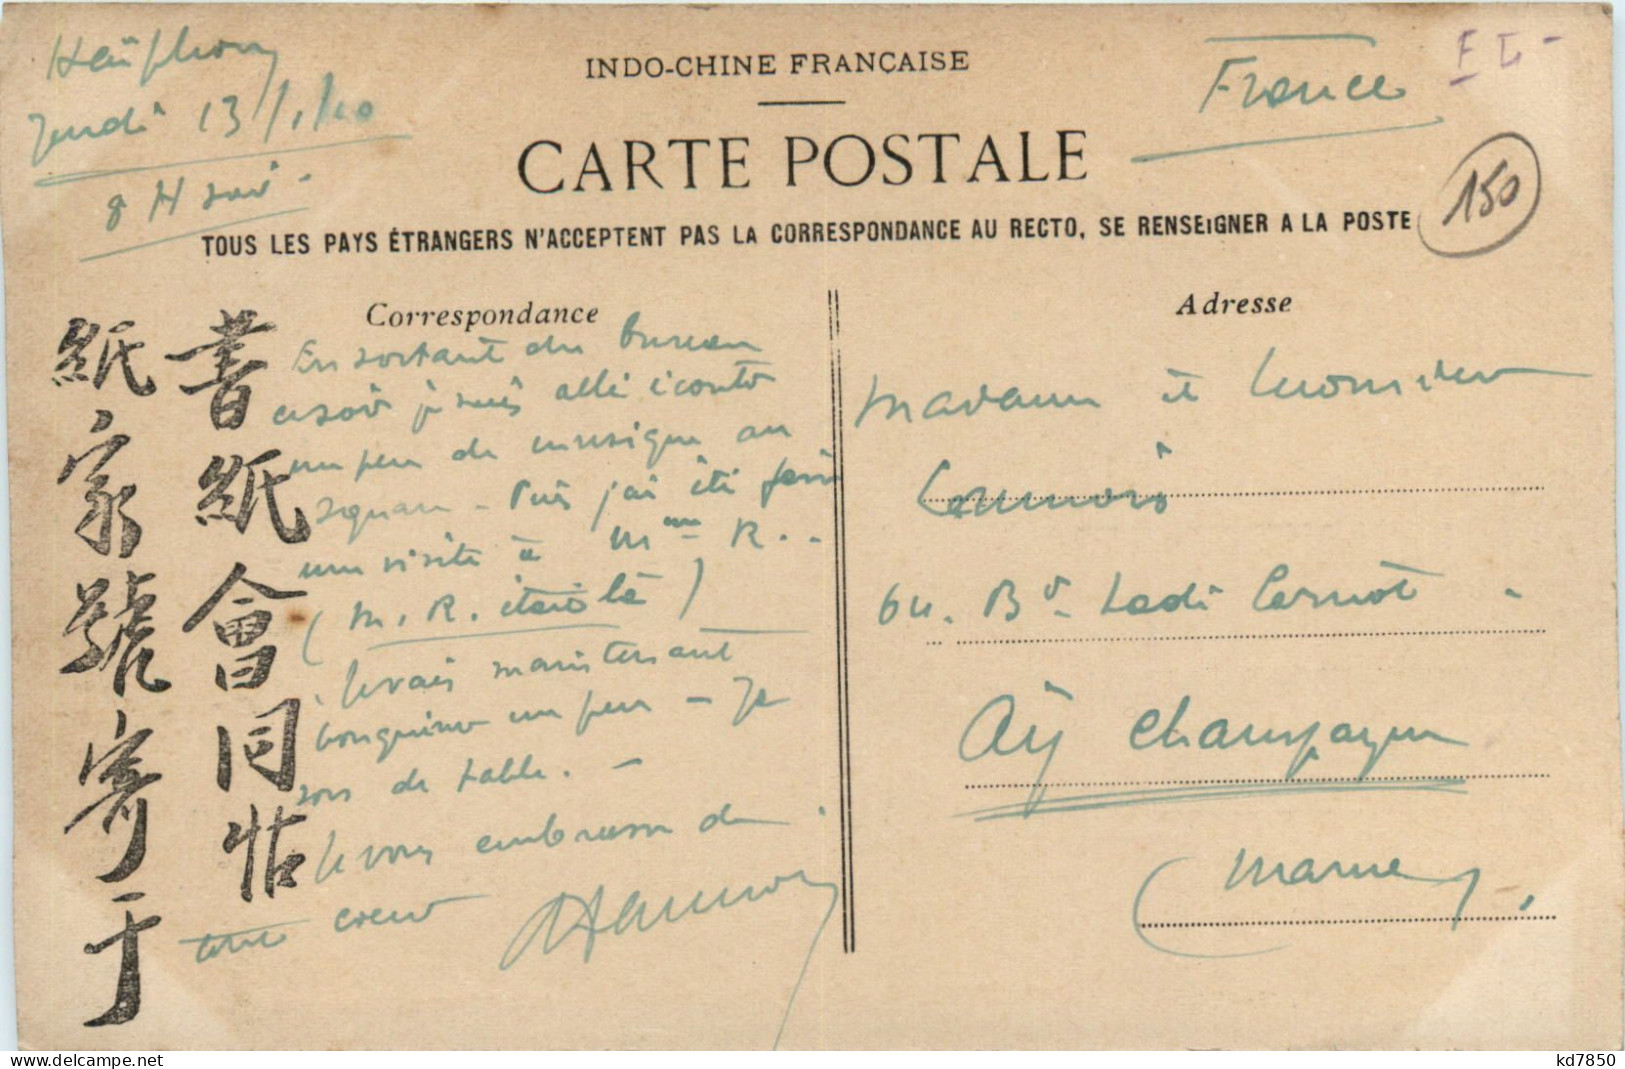 Haïphong
Jeudi 13/1/10
8 H soir -
INDO-CHINE FRANÇAISE
CARTE POSTALE
TOUS LES PAYS ÉTRANGERS N'ACCEPTENT PAS LA CORRESPONDANCE AU RECTO, SE RENSEIGNER A LA POSTE
France
150
Correspondance
En sortant du bureau
ce soir je suis allé écouter
un peu de musique au
square - Puis j'ai été faire
une visite à Mme R..
(M. R. était là)
Je vais maintenant
bouquiner un peu - Je
sors de table. -
Je vous embrasse de
tout coeur
書紙會同帖
紙家號寄于
Adresse
Madame et Monsieur
64. Bd Sadi Carnot -
Aÿ Champagne
(Marne).
delcampe.net
kd7850